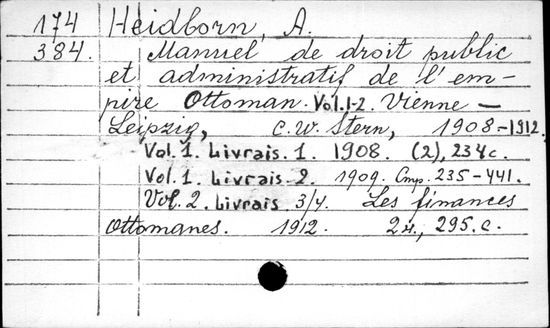 174 Heidborn, A.
384. Manuel de droit public
et administratif de l'em-
pire Ottoman. Vol.1-2. Vienne –
Leipzig, C.W. Stern, 1908-1912.
Vol. 1. Livrais. 1. 1908. (2), 234 с.
Vol. 1. Livrais. 2. 1909. Стр. 235-441.
Vol. 2. Livrais 3/4. Les finances
Ottomanes. 1912. 295. с.